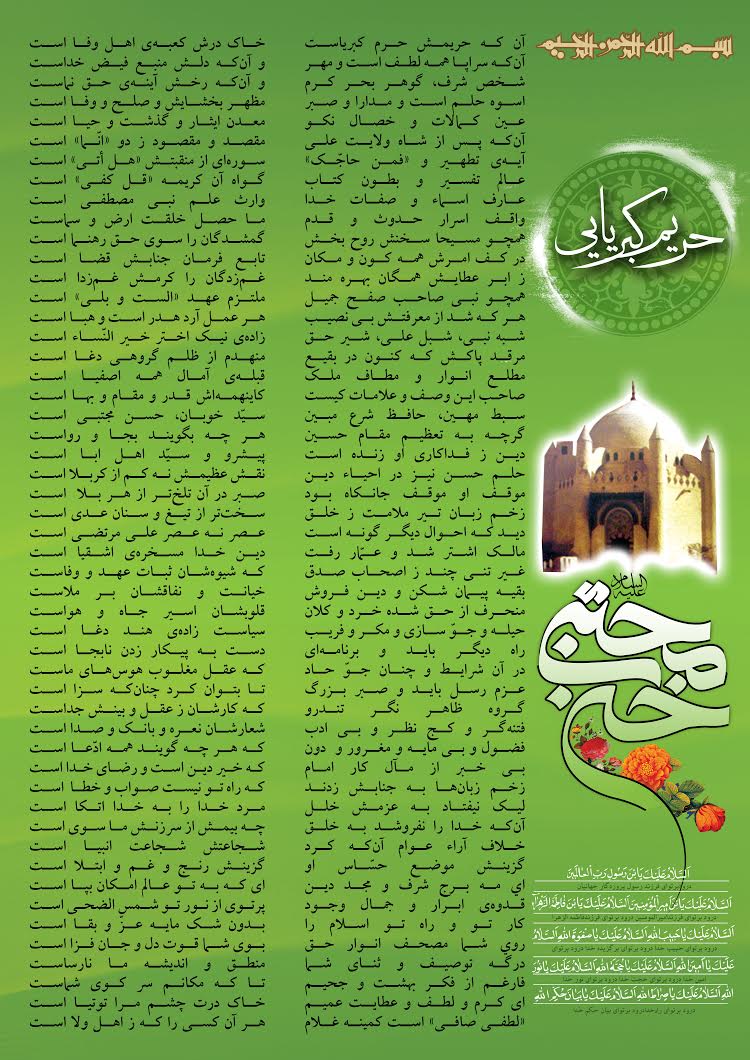 بسم الله الرحمن الرحیم
حریم کبریایی
آن که حریمش حرم کبریاست خاک درش کعبه‌ی اهل وفا است
آن‌که سراپا همه لطف است و مهر و آن‌که دلش منبع فیض خداست
شخص شرف، گوهر بحر کرم و آن‌که رخش آینه‌ی حق نماست
اسوه حلم است و مدارا و صبر مظهر بخشایش و صلح و وفا است
عین کمالات و خصال نکو معدن ایثار و گذشت و حیا است
آن‌که پس از شاه ولایت علی مقصد و مقصود ز دو «انّما» است
آیه‌ی تطهیر و «فمن حاجّک» سوره‌ای از منقبتش «هل أتی» است
عالم تفسیر و بطون کتاب گواه آن کریمه «قل کفی» است
عارف اسماء و صفات خدا وارث علم نبی مصطفی است
واقف اسرار حدوث و قدم ما حصل خلقت ارض و سماست
همچو مسیحا سخنش روح بخش گمشدگان را سوی حق رهنما است
در کف امرش همه کون و مکان تابع فرمان جنابش قضا است
ز ابر عطایش همگان بهره مند غم‌زدگان را کرمش غم‌زدا است
همچو نبی صاحب صفح جمیل ملتزم عهد «الست و بلی» است
هر که شد از معرفتش بی نصیب هر عمل آرد هدر است و هبا است
شبه نبی، شبل علی، شیر حق زاده‌ی نیک اختر خیر النّساء است
مرقد پاکش که کنون در بقیع منهدم از ظلم گروهی دغا است
مطلع انوار و مطاف ملک قبله‌ی آمال همه اصفیا است
صاحب این وصف و علامات کیست کاینهمه‌اش قدر و مقام و بها است
سبط مهین، حافظ شرع مبین سیّد خوبان، حسن مجتبی است
گرچه به تعظیم مقام حسین هر چه بگویند بجا و رواست
دین ز فداکاری او زنده است پیشرو و سیّد اهل ابا است
حلم حسن نیز در احیاء دین نقش عظیمش نه کم از کربلا است
موقف او موقف جانکاه بود صبر در آن تلخ‌تر از هر بلا است
زخم زبان تیر ملامت ز خلق سخت‌تر از تیغ و سنان عدی است
دید که احوال دیگر گونه است عصر نه عصر علی مرتضی است
مالک اشتر شد و عمّار رفت دین خدا مسخره‌ی اشقیا است
غیر تنی چند ز اصحاب صدق که شیوه‌شان ثبات عهد و وفاست
بقیه پیمان شکن و دین فروش خیانت و نفاقشان بر ملاست
منحرف از حق شده خرد و کلان قلوبشان اسیر جاه و هواست
حیله و جوّ سازی و مکر و فریب سیاست زاده‌ی هند دغا است
راه دیگر باید و برنامه‌ای دست به پیکار زدن نابجا است
در آن شرایط و چنان جوّ حاد که عقل مغلوب هوس‌های ماست
عزم رسل باید و صبر بزرگ تا بتوان کرد چنان‌که سزا است
گروه ظاهر نگر تندرو که کارشان ز عقل و بینش جداست
فتنه‌گر و کج نظر و بی ادب شعارشان نعره و بانک و صدا است
فضول و بی مایه و مغرور و دون که هر چه گویند همه ادّعا است
بی خبر از مآل کار امام که خیر دین است و رضای خدا است
زخم زبان‌ها به جنابش زدند که راه تو نیست صواب و خطا است
لیک نیفتاد به عزمش خلل مرد خدا را به خدا اتکا است
آن‌که خدا را نفروشد به خلق چه بیمش از سرزنش ما سوی است
خلاف آراء عوام آن‌که کرد شجاعتش شجاعت انبیا است
گزینش موضع حسّاس او گزینش رنج و غم و ابتلا است
ای مه برج شرف و مجد دین ای که به تو عالم امکان بپا است
قدوه‌ی ابرار و جمال وجود پرتوی از نور تو شمس الضحی است
کار تو و راه تو اسلام را بدون شک مایه عزّ و بقا است
روی شما مصحف انوار حق بوی شما قوت دل و جان فزا است
درگه توصیف و ثنای شما منطق و اندیشه ما نارساست
فارغم از فکر بهشت و جحیم تا که مکانم سر کوی شماست
ای کرم و لطف و عطایت عمیم خاک درت چشم مرا توتیا است
«لطفی صافی» است کمینه غلام هر آن کسی را که ز اهل ولا است
حسن مجتبی
علیه السلام
اَلسَّلامُ عَلَیْكَ یَا بْنَ رَسُولِ رَبِّ الْعالَمینَ
درود بر تو ای فرزند رسول پروردگار جهانیان
اَلسَّلامُ عَلَیْكَ یَا بْنَ اَمیرِ الْمُؤْمِنینَ اَلسَّلامُ عَلَیْكَ یَا بْنَ فاطِمَةَ الزَّهْراءِ
درود بر تو ای فرزند امیرالمومنین درود بر تو ای فرزند فاطمه الزهرا
اَلسَّلامُ عَلَیْكَ یا حَبیبَ اللهِ اَلسَّلامُ عَلَیْكَ یا صَفْوَةَ اللهِ اَلسَّلامُ
درود بر تو ای حبیب خدا درود بر تو ای برگزیده خدا درود بر تو ای
عَلَیْكَ یا اَمینَ اللهِ اَلسَّلامُ عَلَیْكَ یا حُجَّةَ اللهِ اَلسَّلامُ عَلَیْكَ یا نُورَ
امین خدا درود بر تو ای حجت خدا درود بر تو ای نور خدا
اللهِ اَلسَّلامُ عَلَیْكَ یا صِراطَ اللهِ اَلسَّلامُ عَلَیْكَ یا بَیانَ حُکْمِ اللهِ
درود بر تو ای راه خدا درود بر تو ای بیان حکم خدا